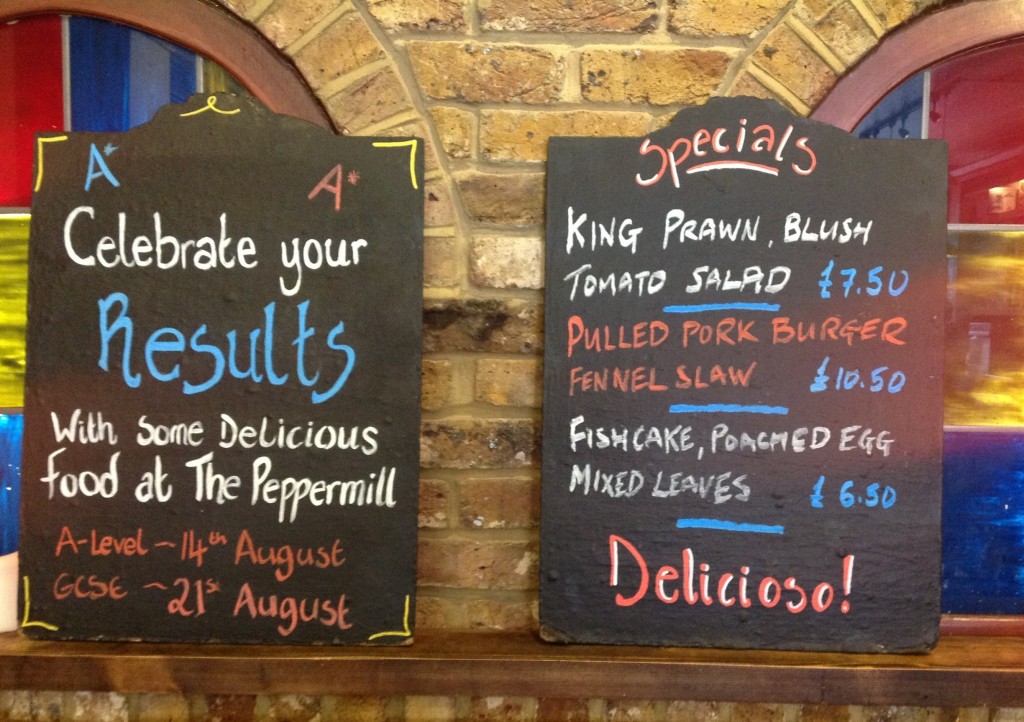 A*
A*
Celebrate your
Results
With Some Delicious
food at The Peppermill
A-Level ~ 14th August
GCSE ~ 21st August
Specials
KING PRAWN, BLUSH
TOMATO SALAD £7.50
PULLED PORK BURGER
FENNEL SLAW £10.50
FISHCAKE, POACHED EGG
MIXED LEAVES £6.50
Delicioso!